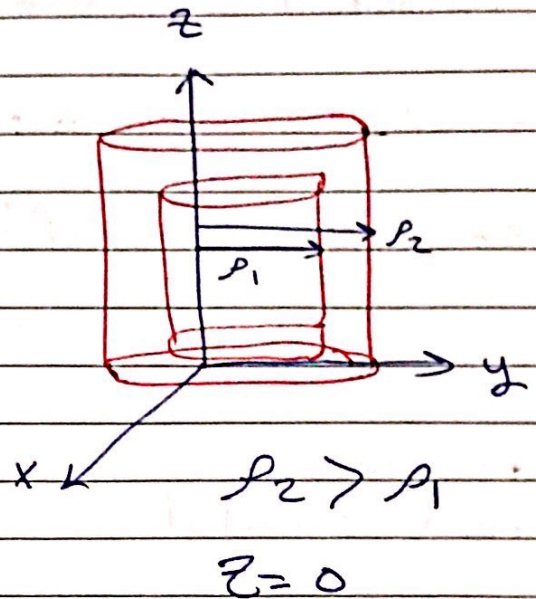 z
ρ₂
ρ₁
y
x
ρ₂ > ρ₁
z = 0